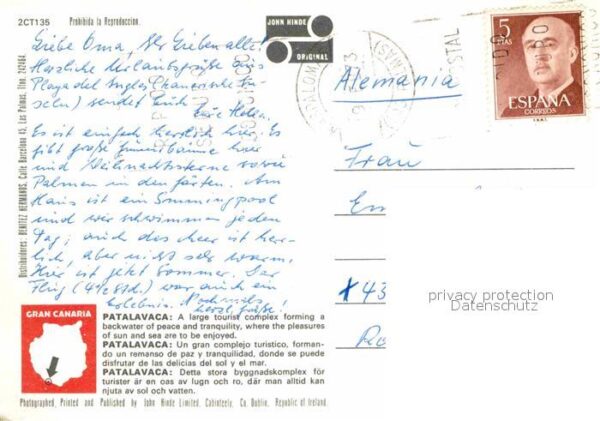 2CT135
Prohibida la Reproduccion.
JOHN HINDE
ORIGINAL
Distribuidores: BENITEZ HERMANOS, Calle Barcelona 45, Las Palmas, Tfno. 242484.
Liebe Oma, Ihr Lieben alle!
Herzliche Urlaubsgrüße aus
Playa del Ingles (Kanarische In-
seln) sendet Euch
Eure
Es ist einfach herrlich hier. Es
gibt große Gummibäume hier
und Weihnachtssterne sowie
Palmen in den Gärten. Am
Haus ist ein Swimmingpool
und wir schwimmen jeden
Tag; auch das Meer ist herr-
lich, aber nicht sehr warm.
Hier ist jetzt Sommer. Der
Flug (4½ Std.) war auch ein
Erlebnis. Nochmals
herzl. Grüße!
5
PTAS
ESPAÑA
CORREOS
Alemania
Frau
43
privacy protection
Datenschutz
GRAN CANARIA
PATALAVACA: A large tourist complex forming a
backwater of peace and tranquility, where the pleasures
of sun and sea are to be enjoyed.
PATALAVACA: Un gran complejo turistico, forman-
do un remanso de paz y tranquilidad, donde se puede
disfrutar de las delicias del sol y el mar.
PATALAVACA: Detta stora byggnadskomplex för
turister är en oas av lugn och ro, där man alltid kan
njuta av sol och vatten.
Photographed, Printed and Published by John Hinde Limited, Cabinteely, Co. Dublin, Republic of Ireland.